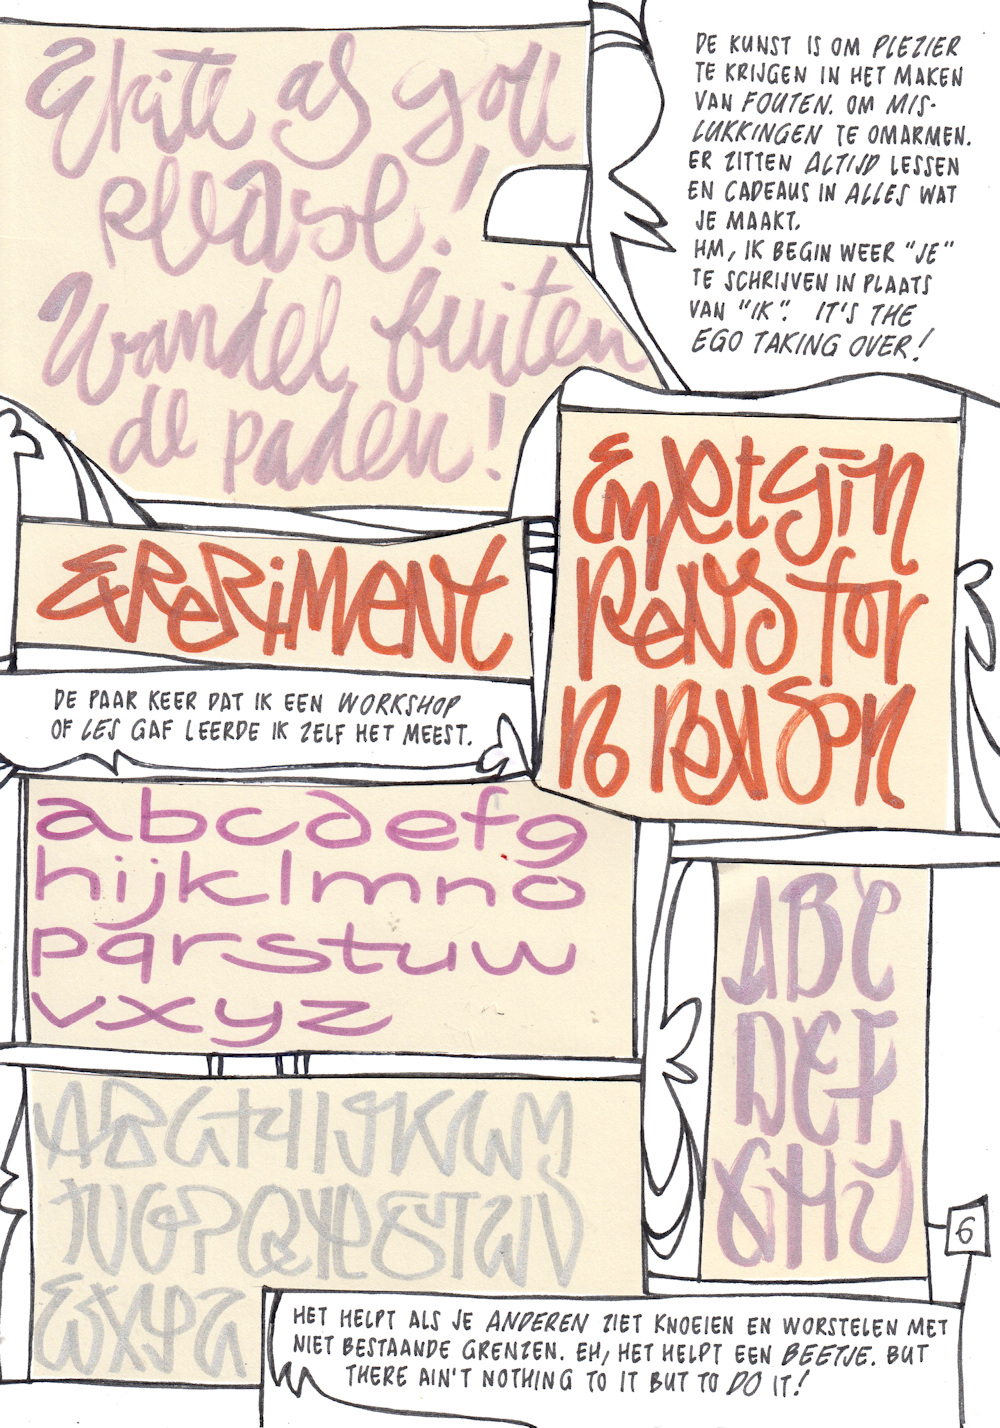 as you
please!
Wandel buiten
de paden!
DE KUNST IS OM PLEZIER
TE KRIJGEN IN HET MAKEN
VAN FOUTEN. OM MIS-
LUKKINGEN TE OMARMEN.
ER ZITTEN ALTIJD LESSEN
EN CADEAUS IN ALLES WAT
JE MAAKT.
HM, IK BEGIN WEER "JE"
TE SCHRIJVEN IN PLAATS
VAN "IK". IT'S THE
EGO TAKING OVER!
EXPERIMENT
pens for
no reason
DE PAAR KEER DAT IK EEN WORKSHOP
OF LES GAF LEERDE IK ZELF HET MEEST.
abcdefg
hijklmno
pqrstuw
vxyz
ABC
DEF
6
HET HELPT ALS JE ANDEREN ZIET KNOEIEN EN WORSTELEN MET
NIET BESTAANDE GRENZEN. EH, HET HELPT EEN BEETJE. BUT
THERE AIN'T NOTHING TO IT BUT TO DO IT!